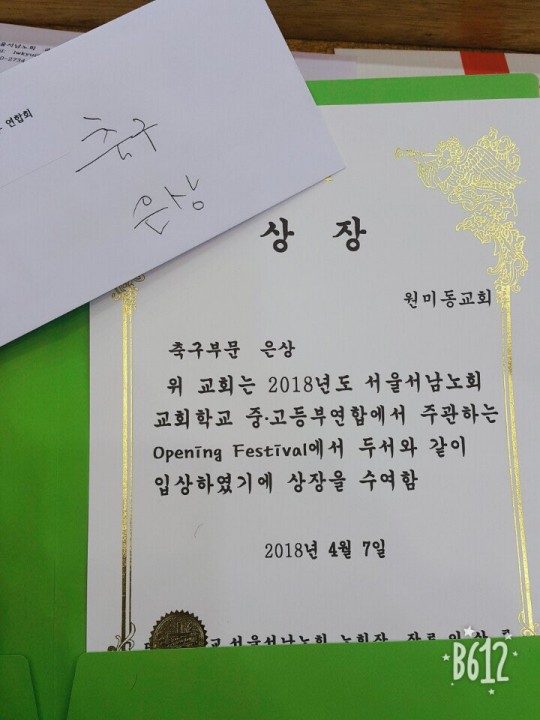 연합회
축구
은상
상 장
원미동교회
축구부문 은상
위 교회는 2018년도 서울서남노회
교회학교 중·고등부연합에서 주관하는
Opening Festival에서 두서와 같이
입상하였기에 상장을 수여함
2018년 4월 7일
서울서남노회 노회장 장로
B612